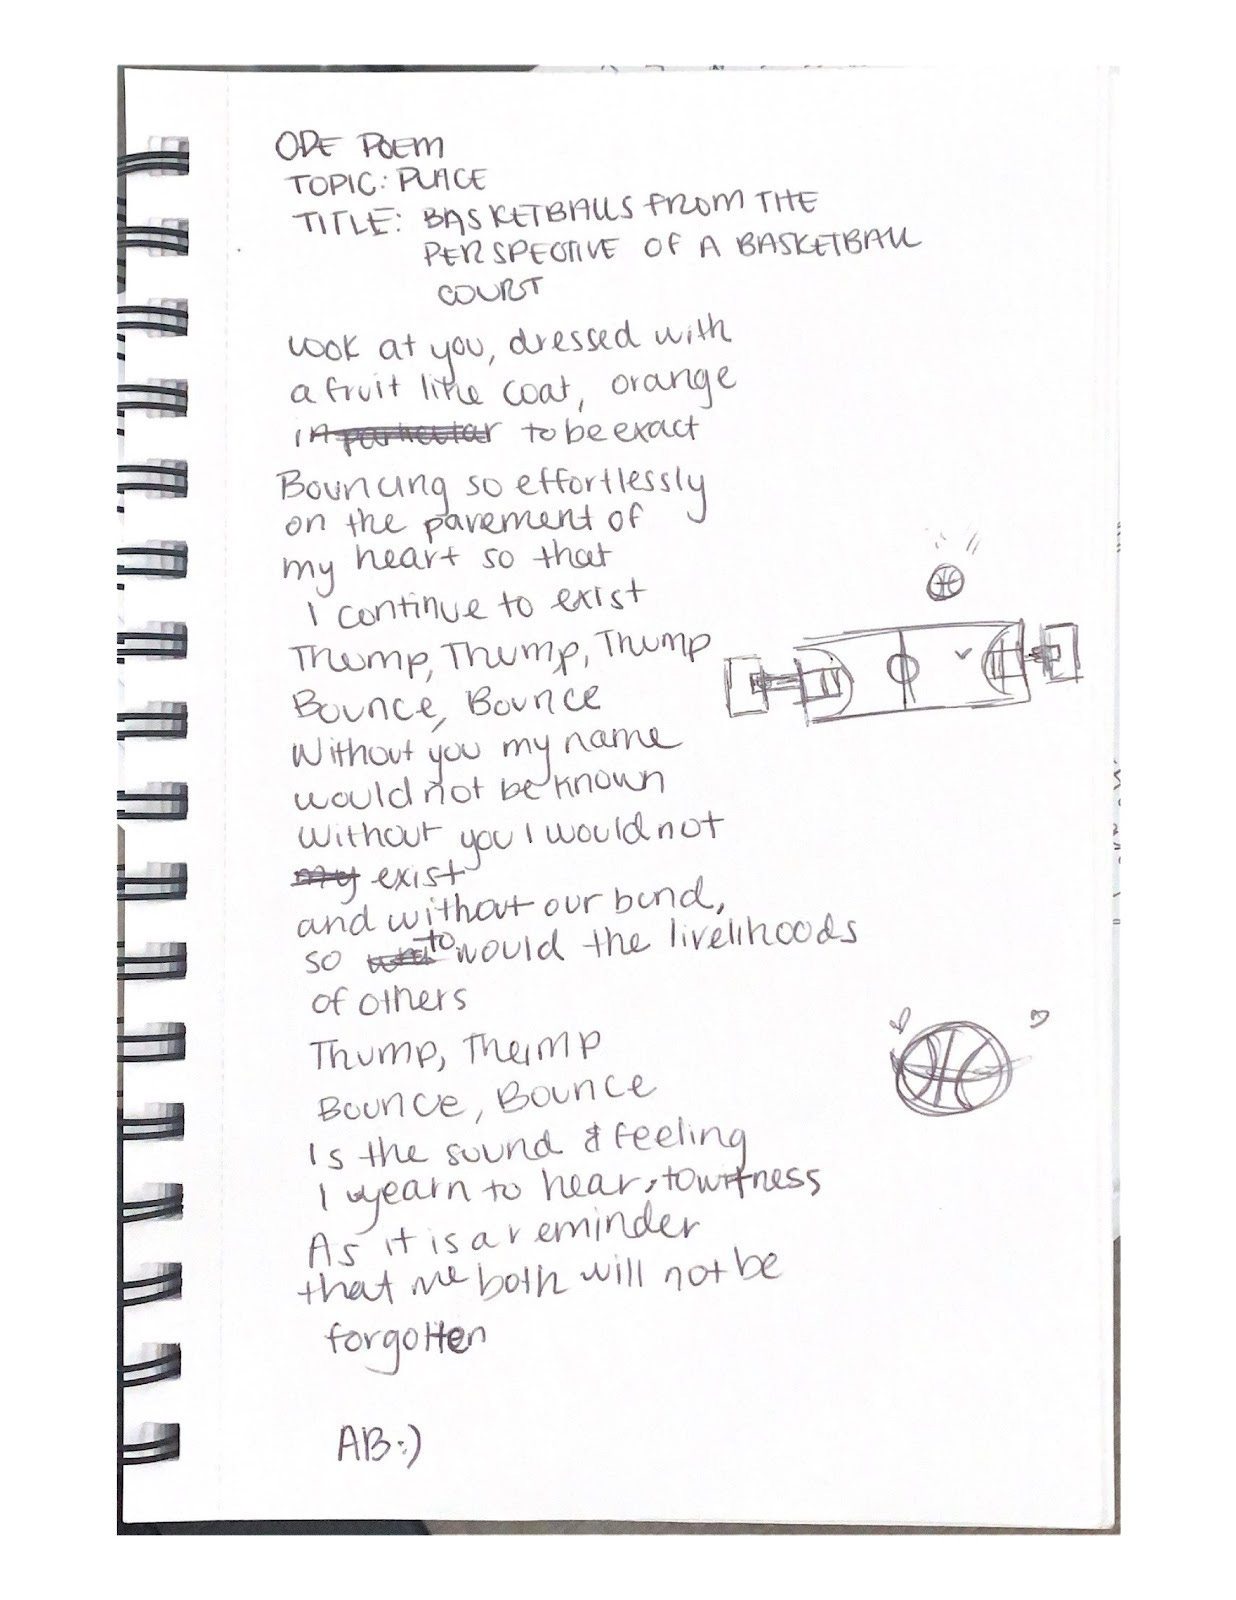 ODE POEM
TOPIC: PLACE
TITLE: BASKETBALLS FROM THE
PERSPECTIVE OF A BASKETBALL
COURT
Look at you, dressed with
a fruit like coat, orange
in particular to be exact
Bouncing so effortlessly
on the pavement of
my heart so that
I continue to exist
Thump, Thump, Thump
Bounce, Bounce
Without you my name
would not be known
Without you I would not
my exist
and without our bond,
so to would the livelihoods
of others
Thump, Thump
Bounce, Bounce
Is the sound & feeling
I yearn to hear, to witness
As it is a reminder
that we both will not be
forgotten
AB:)